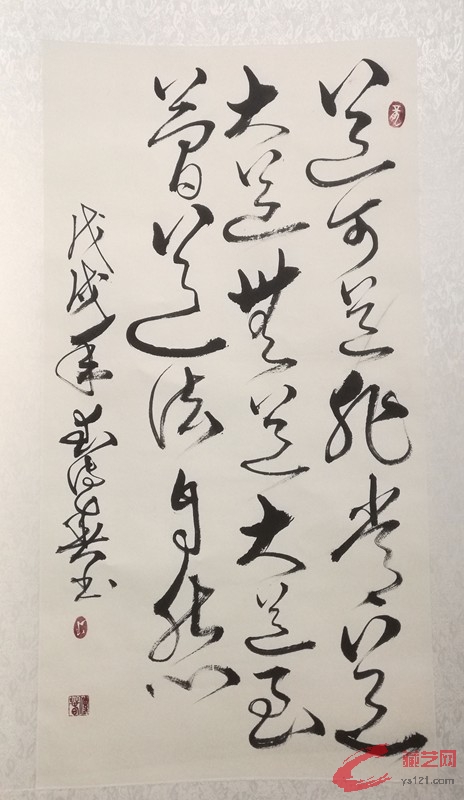 道可道非常道
大道無道大道至
簡道法自然
戊戌年 書
藏艺网
ys121.com